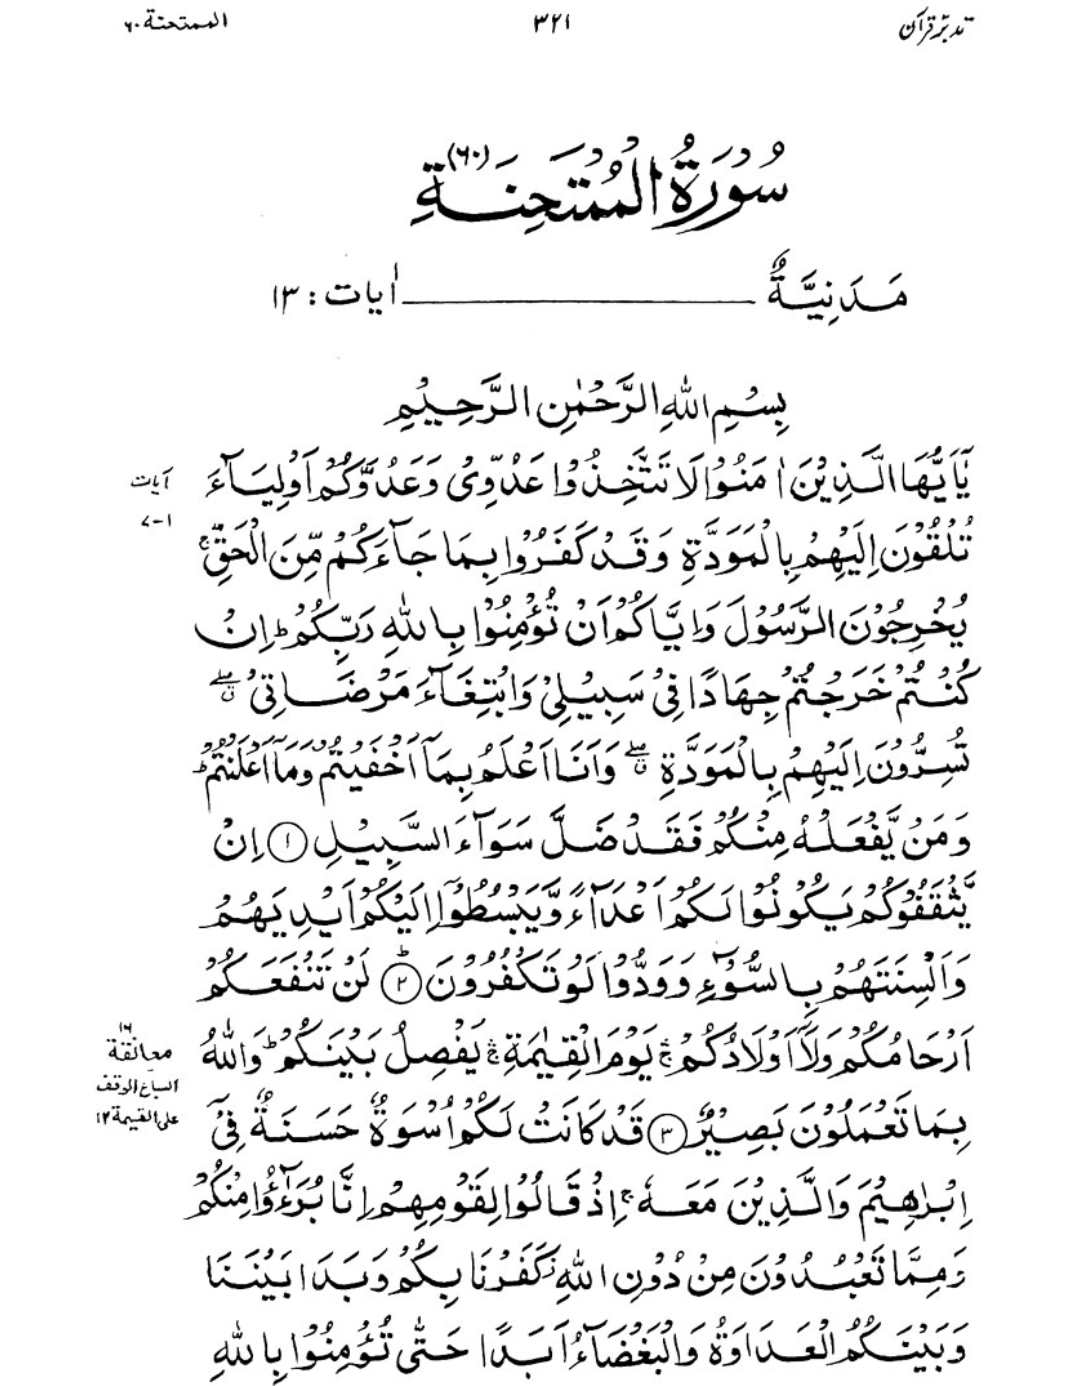 تدبرِ قرآن ۳۲۱ الممتحنة ۶۰
سُوْرَةُ الْمُمْتَحِنَةِ (۶۰)
مَدَنِيَّةٌ اٰيات : ۱۳
بِسْمِ اللّٰهِ الرَّحْمٰنِ الرَّحِيْمِ
يٰۤاَيُّهَا الَّذِيْنَ اٰمَنُوْا لَا تَتَّخِذُوْا عَدُوِّيْ وَعَدُوَّكُمْ اَوْلِيَآءَ
آيات
۱-۷
تُلْقُوْنَ اِلَيْهِمْ بِالْمَوَدَّةِ وَقَدْ كَفَرُوْا بِمَا جَآءَكُمْ مِّنَ الْحَقِّ ۚ
يُخْرِجُوْنَ الرَّسُوْلَ وَاِيَّاكُمْ اَنْ تُؤْمِنُوْا بِاللّٰهِ رَبِّكُمْ ؕ اِنْ
كُنْتُمْ خَرَجْتُمْ جِهَادًا فِيْ سَبِيْلِيْ وَابْتِغَآءَ مَرْضَاتِيْ ۖ ق
تُسِرُّوْنَ اِلَيْهِمْ بِالْمَوَدَّةِ ۖ ق وَاَنَا اَعْلَمُ بِمَاۤ اَخْفَيْتُمْ وَمَاۤ اَعْلَنْتُمْ ؕ
وَمَنْ يَّفْعَلْهُ مِنْكُمْ فَقَدْ ضَلَّ سَوَآءَ السَّبِيْلِ ۱ اِنْ
يَّثْقَفُوْكُمْ يَكُوْنُوْا لَكُمْ اَعْدَآءً وَّيَبْسُطُوْۤا اِلَيْكُمْ اَيْدِيَهُمْ
وَاَلْسِنَتَهُمْ بِالسُّوْٓءِ وَوَدُّوْا لَوْ تَكْفُرُوْنَ ؕ ۲ لَنْ تَنْفَعَكُمْ
اَرْحَامُكُمْ وَلَاۤ اَوْلَادُكُمْ ۛۚ يَوْمَ الْقِيٰمَةِ ۛۚ يَفْصِلُ بَيْنَكُمْ ؕ وَاللّٰهُ
۱۶
معانقة
علی القيمة ۱۲
بِمَا تَعْمَلُوْنَ بَصِيْرٌ ۳ قَدْ كَانَتْ لَكُمْ اُسْوَةٌ حَسَنَةٌ فِيْۤ
اِبْرٰهِيْمَ وَالَّذِيْنَ مَعَهٗ ۚ اِذْ قَالُوْا لِقَوْمِهِمْ اِنَّا بُرَءٰٓؤُا مِنْكُمْ
وَمِمَّا تَعْبُدُوْنَ مِنْ دُوْنِ اللّٰهِ ز كَفَرْنَا بِكُمْ وَبَدَا بَيْنَنَا
وَبَيْنَكُمُ الْعَدَاوَةُ وَالْبَغْضَآءُ اَبَدًا حَتّٰى تُؤْمِنُوْا بِاللّٰهِ